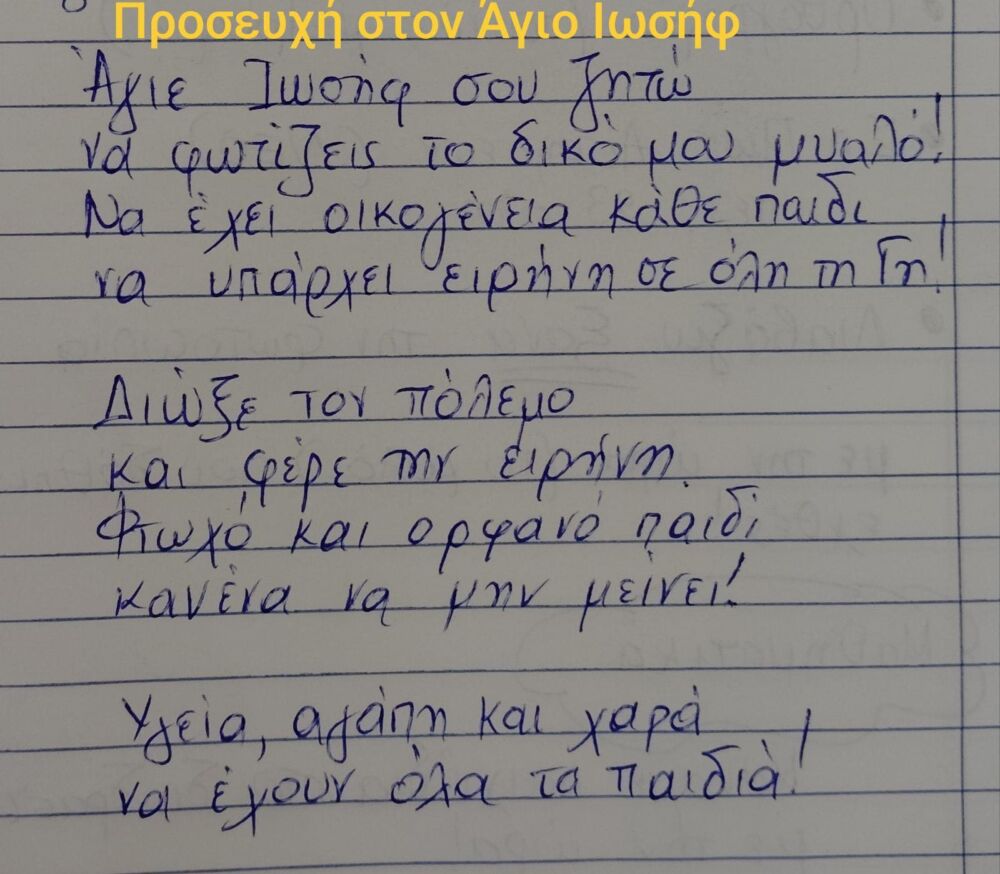 Προσευχή στον Άγιο Ιωσήφ
Άγιε Ιωσήφ σου ζητώ
να φωτίζεις το δικό μου μυαλό!
Να έχει οικογένεια κάθε παιδί
να υπάρχει ειρήνη σε όλη τη Γη!
Διώξε τον πόλεμο
και φέρε την ειρήνη.
Φτωχό και ορφανό παιδί
κανένα να μην μείνει!
Υγεία, αγάπη και χαρά
να έχουν όλα τα παιδιά!